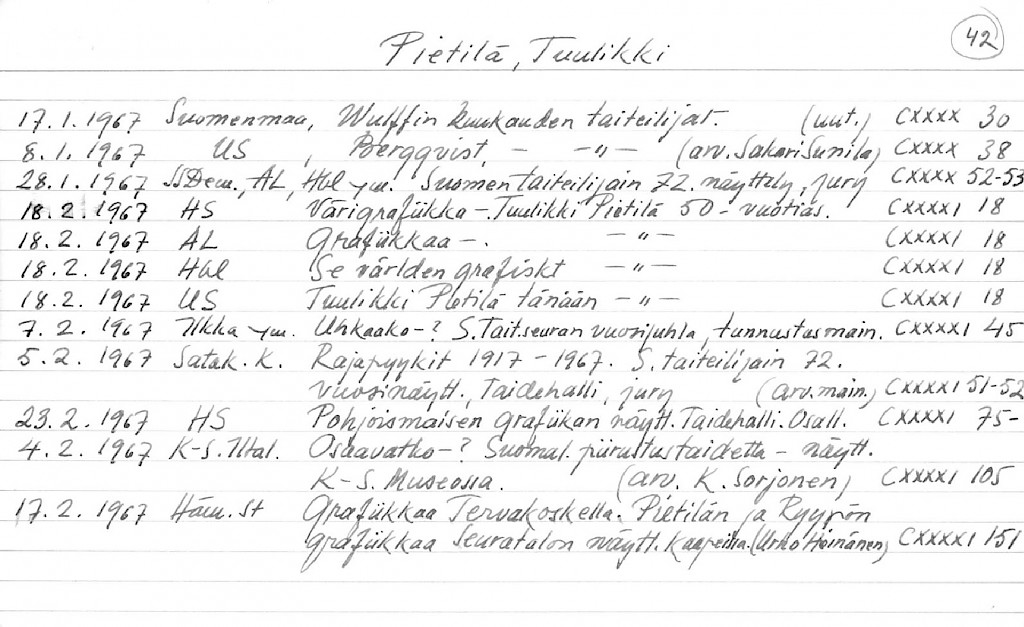 42
Pietilä, Tuulikki
17.1.1967 Suomenmaa, Wulffin kuukauden taiteilijat. (uut.) CXXXX 30
8.1.1967 US , Bergqvist, - -"- (arv. Sakari Sunila) CXXXX 38
28.1.1967 SSDem., AL, Hbl ym. Suomen taiteilijain 72. näyttely, jury CXXXX 52-53
18.2.1967 HS Värigrafiikka -. Tuulikki Pietilä 50-vuotias. CXXXXI 18
18.2.1967 AL Grafiikkaa -. -"- CXXXXI 18
18.2.1967 Hbl Se världen grafiskt -"- CXXXXI 18
18.2.1967 US Tuulikki Pietilä tänään -"- CXXXXI 18
7.2.1967 Ilkka ym. Uhkaako-? S. Tait.seuran vuosijuhla, tunnustusmain. CXXXXI 45
5.2.1967 Satak. K. Rajapyykit 1917-1967. S. taiteilijain 72.
vuosinäytt., Taidehalli, jury (arv.main.) CXXXXI 51-52
23.2.1967 HS Pohjoismaisen grafiikan näytt. Taidehalli. Osall. CXXXXI 75-
4.2.1967 K-S. Iltal. Osaavatko-? Suomal. piirustustaidetta - näytt.
K-S. Museossa. (arv. K. Sorjonen) CXXXXI 105
17.2.1967 Häm. St Grafiikkaa Tervakoskella. Pietilän ja Ryypön
grafiikkaa Seuratalon näytt. kaapeissa. (Urho Heinänen) CXXXXI 151